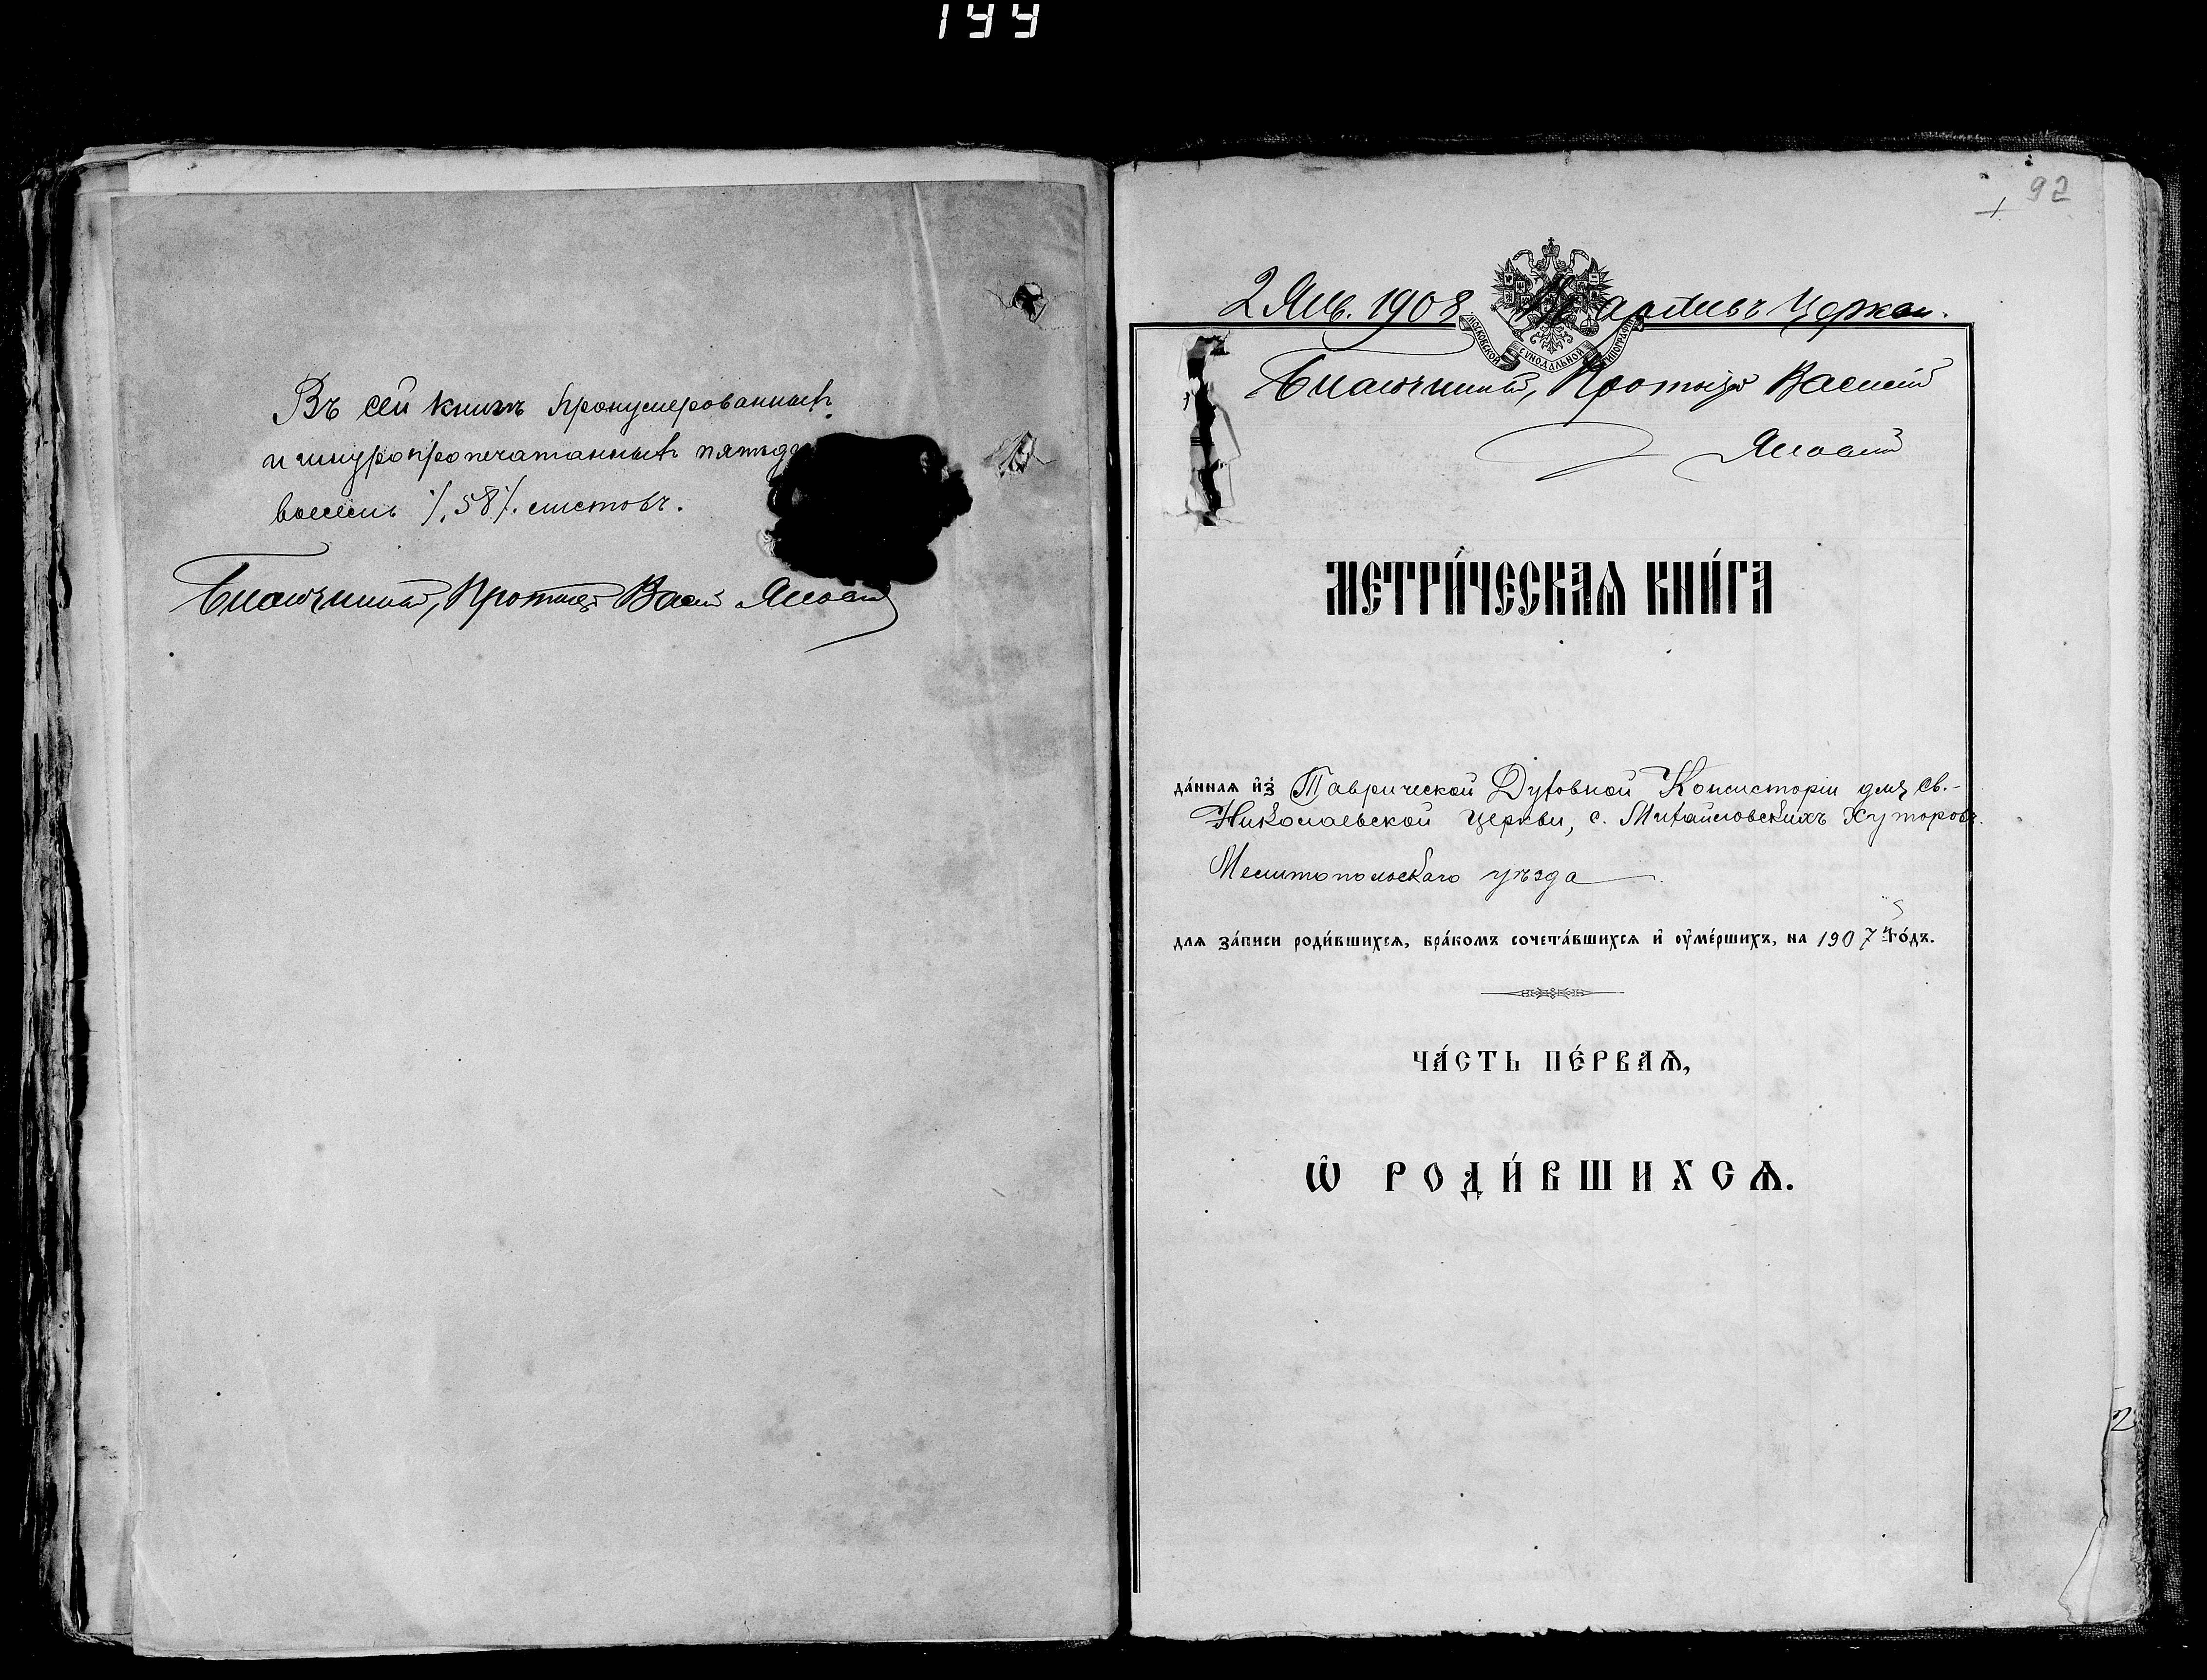 199
Въ сей книгѣ пронумерованныхъ
и шнуропропечатанныхъ пятьде
восемь /58/ листовъ.
Благочинный, Протоіер Васил
92
2 Янв. 1908 Церкви.
МОСКОВСКОЙ СѴНОДАЛЬНОЙ ТИПОГРАФІИ
Благочинный, Протоіер Василій
МЕТРИ́ЧЕСКАѦ КНИ́ГА
да́ннаѧ и҆з̾ Таврической Духовной Консисторіи для Св.-
Николаевской церкви, с. Михайловскихъ Хуторовъ.
Мелитопольскаго уѣзда
длѧ за́писи роди́вшихсѧ, бра́комъ сочета́вшихсѧ и҆ ѹ҆ме́ршихъ, на 1907й го́дъ.
ЧА́СТЬ ПЕ́РВАѦ,
Ѡ҆ РОДИ́ВШИХСѦ.
2